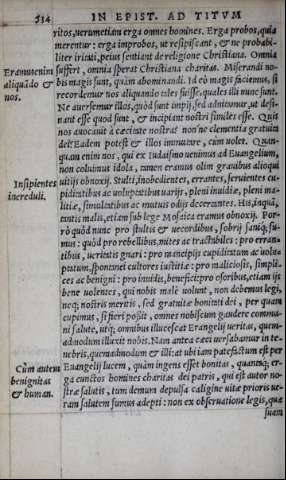 514 IN EPIST. AD TITVM
ritos, uerumetiam erga omnes homines. Erga probos, quia
merentur: erga improbos, ut resipiscant, & ne probabi-
liter irriti, peius sentiant de religione Christiana. Omnia
Eramus enim suffert, omnia sperat Christiana charitas. Miserandi no-
aliquādo & bis magis sunt, quàm abominandi. Id eò magis faciemus, si
nos. recordemur nos aliquando tales fuisse, quales illi nunc sunt.
Ne auersemur illos, quòd sunt impij, sed admoneamur, ut desi-
nant esse quod sunt, & incipiant nostri similes esse. Quis
nos auocauit à cæcitate nostra? nonne clementia gratuita
dei? Eadem potest & illos immutare, cum uolet. Quan-
quam enim nos, qui ex Iudaismo uenimus ad Euangelium,
non coluimus idola, tamen eramus olim grauibus alioqui
Insipientes uitijs obnoxij. Stulti, inobedientes, errantes, seruientes cu-
increduli. piditatibus ac uoluptatibus uarijs, pleni inuidiæ, pleni ma-
litiæ, simultatibus ac mutuis odijs decertantes. His, inquā,
tantis malis, etiam sub lege Mosaica eramus obnoxij. Por-
rò quòd nunc pro stultis & uecordibus, sobrij saniq́; su-
mus: quòd pro rebellibus, mites ac tractabiles: pro erran-
tibus, ueritatis gnari: pro mancipijs cupiditatum ac uolu-
ptatum, spontanei cultores iustitiæ: pro maliciosis, simpli-
ces ac benigni: pro inuidis, benefici: pro osoribus, etiam ijs
bene uolentes, qui nobis malè uolunt, non debemus legi,
neq; nostris meritis, sed gratuitæ bonitati dei, per quam
cupimus, si fieri possit, omnes nobiscum gaudere commu-
ni salute, utq; omnibus illucescat Euangelij ueritas, quem-
admodum illuxit nobis. Nam antea cæci uersabamur in te-
nebris, quemadmodum & illi: at ubi iam patefactum est per
Cùm autem Euangelij lucem, quàm ingens esset bonitas, quantaq; er-
benignitas ga cunctos homines charitas dei patris, qui est autor no-
& human. stræ salutis, tum demum depulsa caligine uitæ prioris ue-
ram salutem sumus adepti: non ex obseruatione legis, quæ
suam